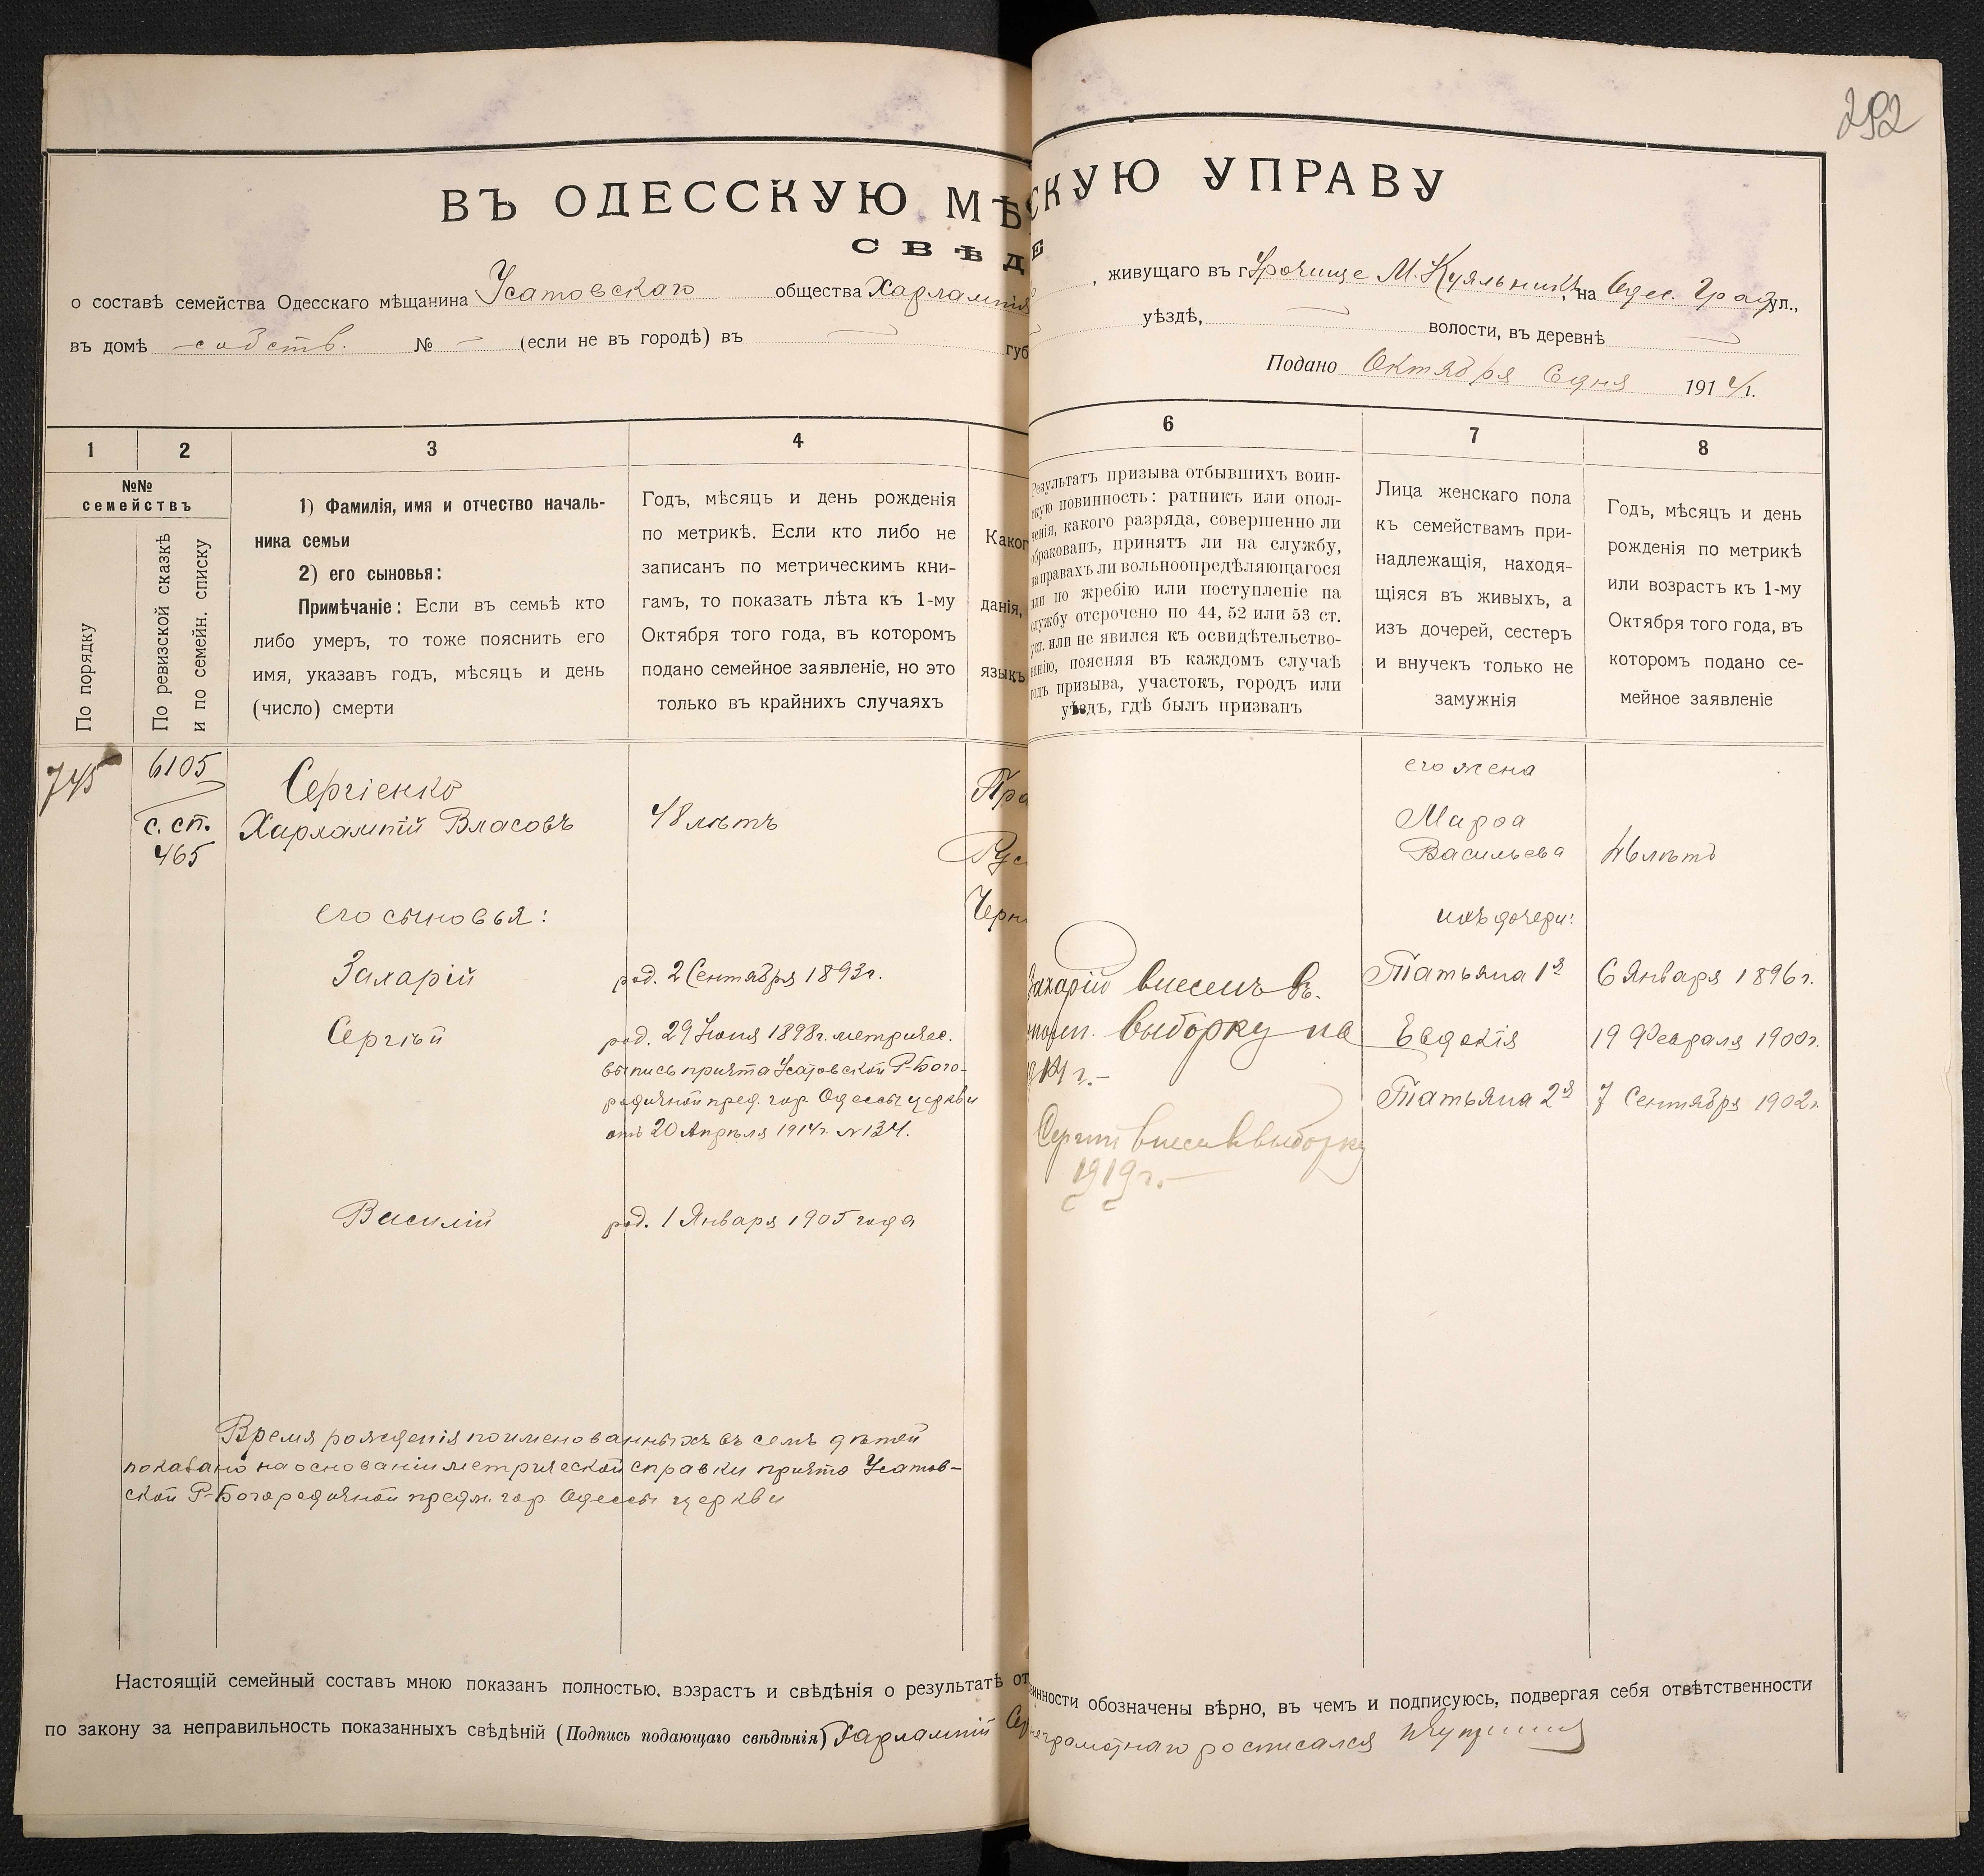 292
ВЪ ОДЕССКУЮ МѢ
СКУЮ УПРАВУ
СВѢД
Е
о составѣ семейства Одесскаго мѣщанина Усатовскаго общества Харлампія
, живущаго въ г. Урочище М. Куяльникъ, на Одес. Град ул.,
въ домѣ собств. № — (если не въ городѣ) въ — губ
уѣздѣ, — волости, въ деревнѣ —
Подано Октября 6 дня 1914 г.
1
2
3
4
№№
семействъ
По порядку
По ревизской сказкѣ
и по семейн. списку
1) Фамилія, имя и отчество началь-
ника семьи
2) его сыновья:
Примѣчаніе: Если въ семьѣ кто
либо умеръ, то тоже пояснить его
имя, указавъ годъ, мѣсяць и день
(число) смерти
Годъ, мѣсяць и день рожденія
по метрикѣ. Если кто либо не
записанъ по метрическимъ кни-
гамъ, то показать лѣта къ 1-му
Октября того года, въ которомъ
подано семейное заявленіе, но это
только въ крайнихъ случаяхъ
Каког
данія,
языкъ
745
6105
с. сп.
465
Сергіенко
Харлампій Власовъ
48 лѣтъ
Пра
Рус
Черн
его сыновья:
Захарій
род. 2 Сентября 1893 г.
Сергѣй
род. 29 Іюня 1898 г. метричес.
выпись причта Усатовской Р-Бого-
родичной пред. гор. Одессы церкви
отъ 20 Апрѣля 1914 г. № 134.
Василій
род. 1 Января 1905 года
Время рожденія поименованныхъ въ семъ дѣтей
показано на основаніи метрической справки причта Усатов-
ской Р-Богородичной предм. гор. Одессы церкви
6
7
8
Результатъ призыва отбывшихъ воин-
скую повинность: ратникъ или опол-
ченія, какого разряда, совершенно ли
обракованъ, принятъ ли на службу,
на правахъ ли вольноопредѣляющагося
или по жребію или поступленіе на
службу отсрочено по 44, 52 или 53 ст.
уст. или не явился къ освидѣтельство-
ванію, поясняя въ каждомъ случаѣ
годъ призыва, участокъ, городъ или
уѣздъ, гдѣ былъ призванъ
Лица женскаго пола
къ семействамъ при-
надлежащія, находя-
щіяся въ живыхъ, а
изъ дочерей, сестеръ
и внучекъ только не
замужнія
Годъ, мѣсяцъ и день
рожденія по метрикѣ
или возрастъ къ 1-му
Октября того года, въ
которомъ подано се-
мейное заявленіе
его жена
Марѳа
Васильева
46 лѣтъ
ихъ дочери:
Захарій внесенъ въ
выборку на
1914 г.—
Сергѣй внесен въ выборку
1919 г.—
Татьяна 1я
6 Января 1896 г.
Евдокія
19 Февраля 1900 г.
Татьяна 2я
7 Сентября 1902 г.
Настоящій семейный составъ мною показанъ полностью, возрастъ и свѣдѣнія о результатѣ от
инности обозначены вѣрно, въ чемъ и подписуюсь, подвергая себя отвѣтственности
по закону за неправильность показанныхъ свѣдѣній (Подпись подающаго свѣдѣнія) Харлампій Сер
неграмотнаго росписался